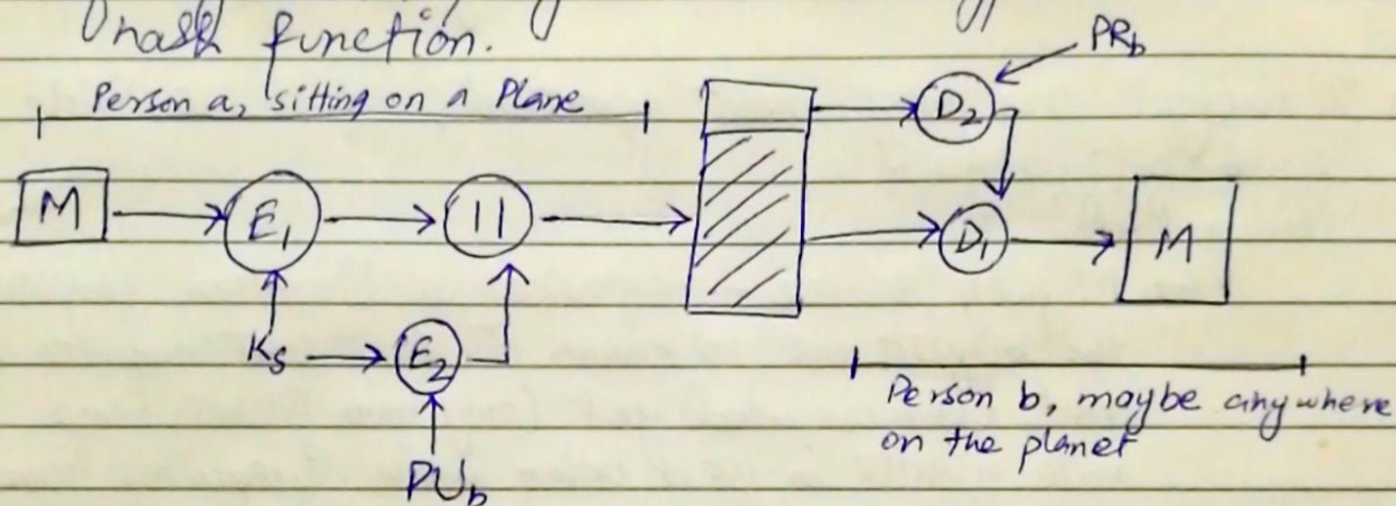 hash function.
PRb
Person a, sitting on a Plane
D2
M
E1
||
D1
M
Ks
E2
Person b, maybe anywhere
on the planet
PUb